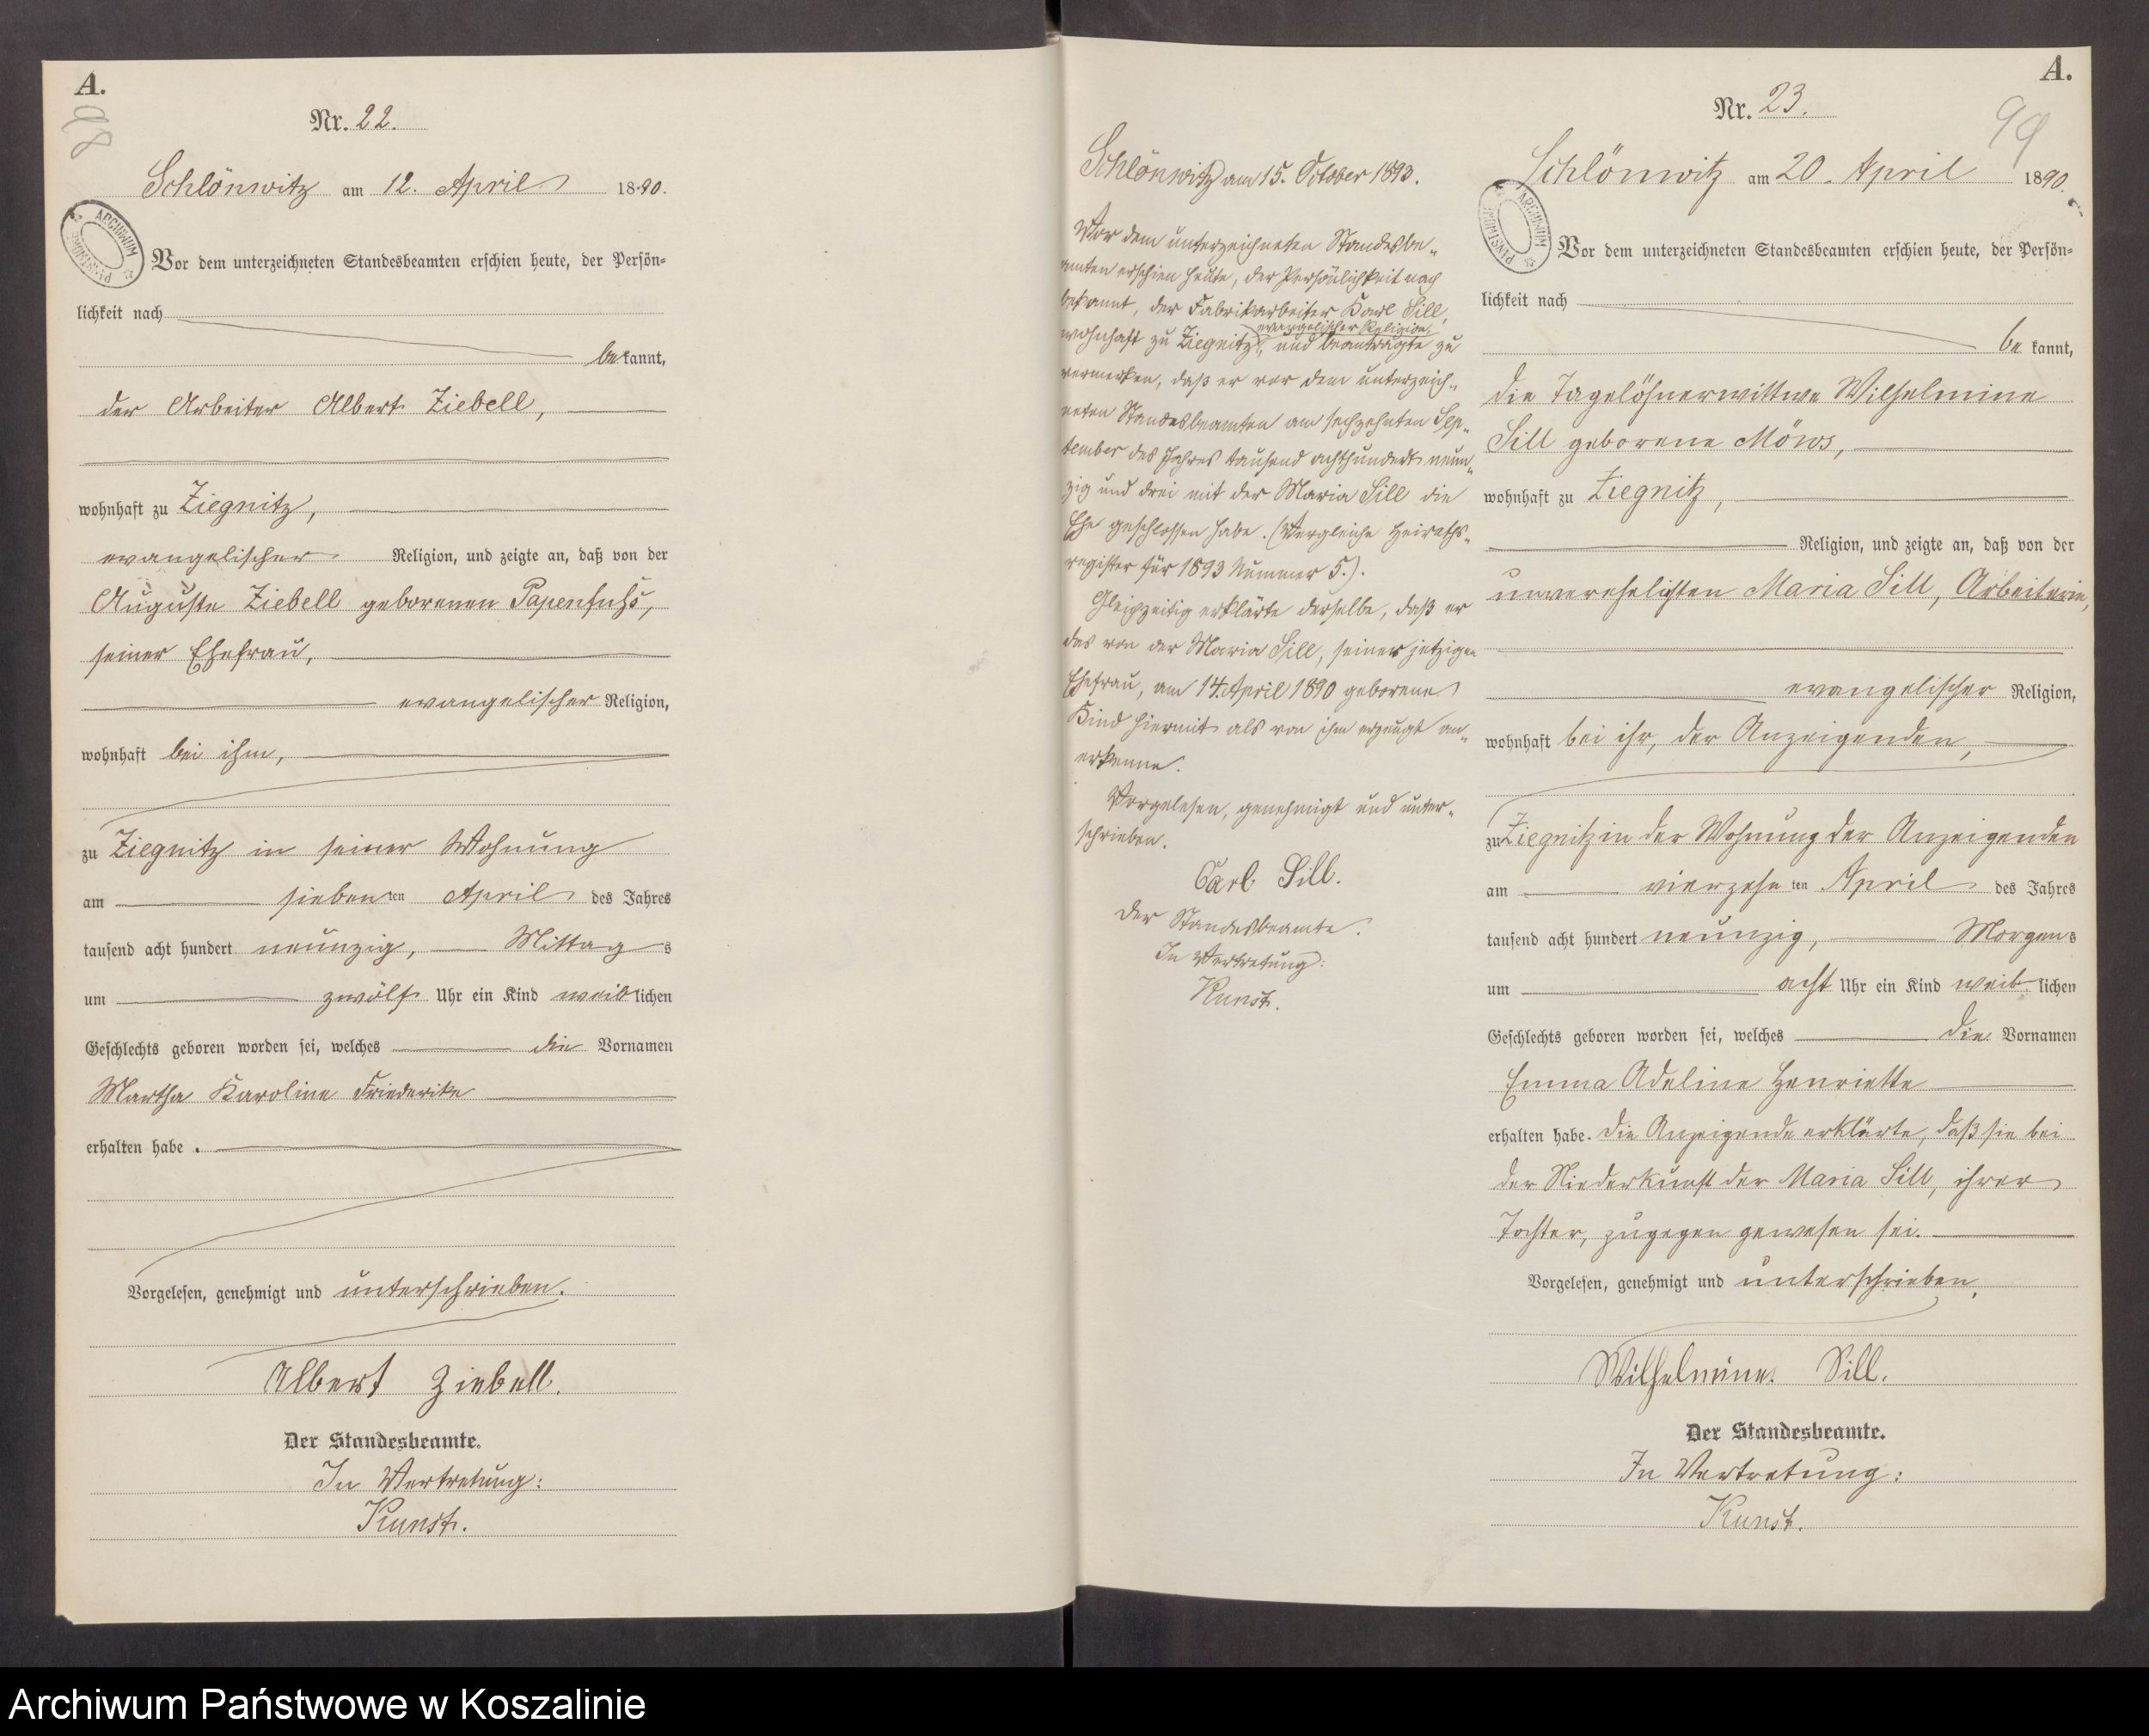 A.
98
Nr. 22.
Schlönwitz am 12. April 1890.
ARCHIWUM PAŃSTWOWE
Vor dem unterzeichneten Standesbeamten erschien heute, der Persön-
lichkeit nach
bekannt,
der Arbeiter Albert Ziebell,
wohnhaft zu Ziegnitz,
evangelischer Religion, und zeigte an, daß von der
Auguste Ziebell geborenen Papenfuhs,
seiner Ehefrau,
evangelischer Religion,
wohnhaft bei ihm,
zu Ziegnitz in seiner Wohnung
am siebenten April des Jahres
tausend acht hundert neunzig, Mittags
um zwölf Uhr ein Kind weiblichen
Geschlechts geboren worden sei, welches die Vornamen
Martha Karoline Friederike
erhalten habe.
Vorgelesen, genehmigt und unterschrieben.
Albert Ziebell.
Der Standesbeamte.
In Vertretung:
Kunst.
Schlönwitz am 15. October 1893.
Vor dem unterzeichneten Standesbe-
amten erschien heute, der Persönlichkeit nach
bekannt, der Fabrikarbeiter Karl Sill,
evangelischer Religion,
wohnhaft zu Ziegnitz, und beantragte zu
vermerken, daß er vor dem unterzeich-
neten Standesbeamten am sechzehnten Sep-
tember des Jahres tausend achthundert neun-
zig und drei mit der Maria Sill die
Ehe geschlossen habe. (Vergleiche Heiraths-
register für 1893 Nummer 5.).
Gleichzeitig erklärte derselbe, daß er
das von der Maria Sill, seiner jetzigen
Ehefrau, am 14. April 1890 geborene
Kind hiermit als von ihm erzeugt an-
erkenne.
Vorgelesen, genehmigt und unter-
schrieben.
Carl Sill.
Der Standesbeamte.
In Vertretung:
Kunst.
A.
99
Nr. 23.
Schlönwitz am 20. April 1890.
ARCHIWUM PAŃSTWOWE
Vor dem unterzeichneten Standesbeamten erschien heute, der Persön-
lichkeit nach
be kannt,
die Tagelöhnerwittwe Wilhelmine
Sill geborene Möws,
wohnhaft zu Ziegnitz,
Religion, und zeigte an, daß von der
unverehelichten Maria Sill, Arbeiterin,
evangelischer Religion,
wohnhaft bei ihr, der Anzeigenden,
zu Ziegnitz in der Wohnung der Anzeigenden
am vierzehnten April des Jahres
tausend acht hundert neunzig, Morgens
um acht Uhr ein Kind weiblichen
Geschlechts geboren worden sei, welches die Vornamen
Emma Adeline Henriette
erhalten habe. Die Anzeigende erklärte, daß sie bei
der Niederkunft der Maria Sill, ihrer
Tochter, zugegen gewesen sei.
Vorgelesen, genehmigt und unterschrieben.
Wilhelmine Sill.
Der Standesbeamte.
In Vertretung:
Kunst.
Archiwum Państwowe w Koszalinie